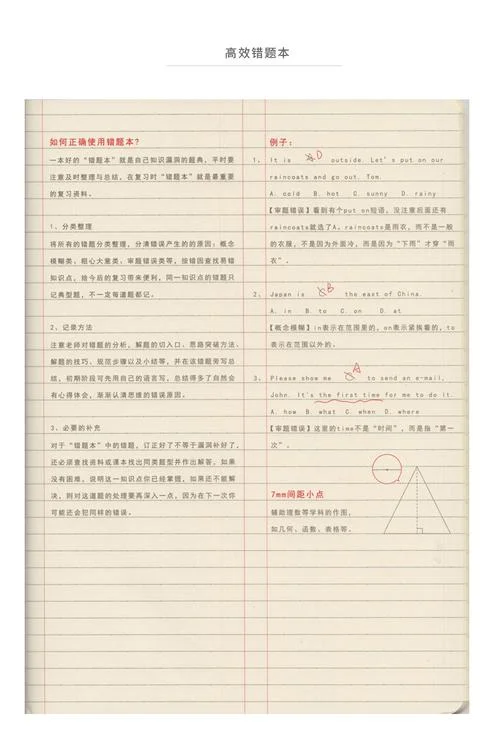 高效错题本
如何正确使用错题本?
一本好的“错题本”就是自己知识漏洞的题典，平时要
注意及时整理与总结，在复习时“错题本”就是最重要
的复习资料。
1、分类整理
将所有的错题分类整理，分清错误产生的的原因：概念
模糊类、粗心大意类、审题错误类等，按错因查找易错
知识点，给今后的复习带来便利，同一知识点的错题只
记典型题，不一定每道题都记。
2、记录方法
注意老师对错题的分析，解题的切入口、思路突破方法、
解题的技巧、规范步骤以及小结等，并在该错题旁写总
结，初期阶段可先用自己的语言写，总结得多了自然会
有心得体会，渐渐认清思维的错误原因。
3、必要的补充
对于“错题本”中的错题，订正好了不等于漏洞补好了，
还必须查找资料或课本找出同类题型并作出解答，如果
没有困难，说明这一知识点你已经掌握，如果还不能解
决，则对这道题的处理要再深入一点，因为在下一次你
可能还会犯同样的错误。
例子：
1、 It is D outside. Let's put on our
raincoats and go out, Tom.
A. cold B. hot C. sunny D. rainy
【审题错误】看到有个put on短语，没注意后面还有
raincoats就选了A。raincoats是雨衣，而不是一般
的衣服，不是因为外面冷，而是因为“下雨”才穿“雨
衣”。
2、 Japan is B the east of China.
A. in B. to C. on D. at
【概念模糊】in表示在范围里的，on表示紧挨着的，to
表示在范围以外的。
3、 Please show me A to send an e-mail,
John. It's the first time for me to do it.
A. how B. what C. when D. where
【审题错误】这里的time不是“时间”，而是指“第一
次”。
7mm间距小点
辅助理数等学科的作图，
如几何、函数、表格等。